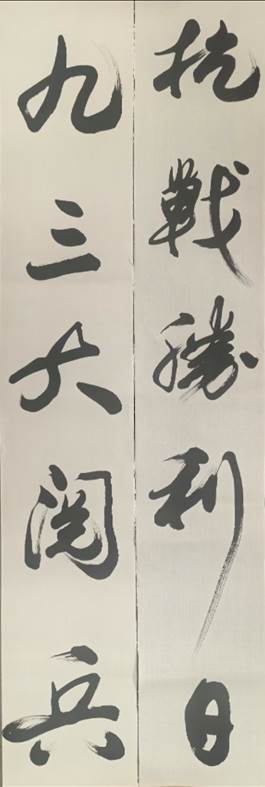 抗戰勝利日
九三大阅兵